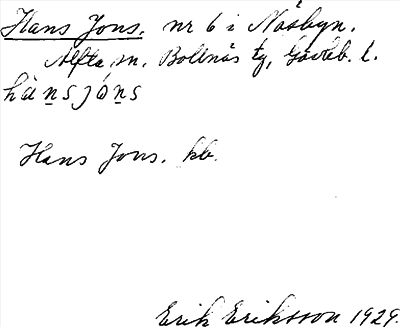 Hans Jons, nr 6 i Näsbyn.
Alfta sn. Bollnäs tg, Gävleb. l.
hànsjón̲s
Hans Jons. kb.
Erik Eriksson 1929.